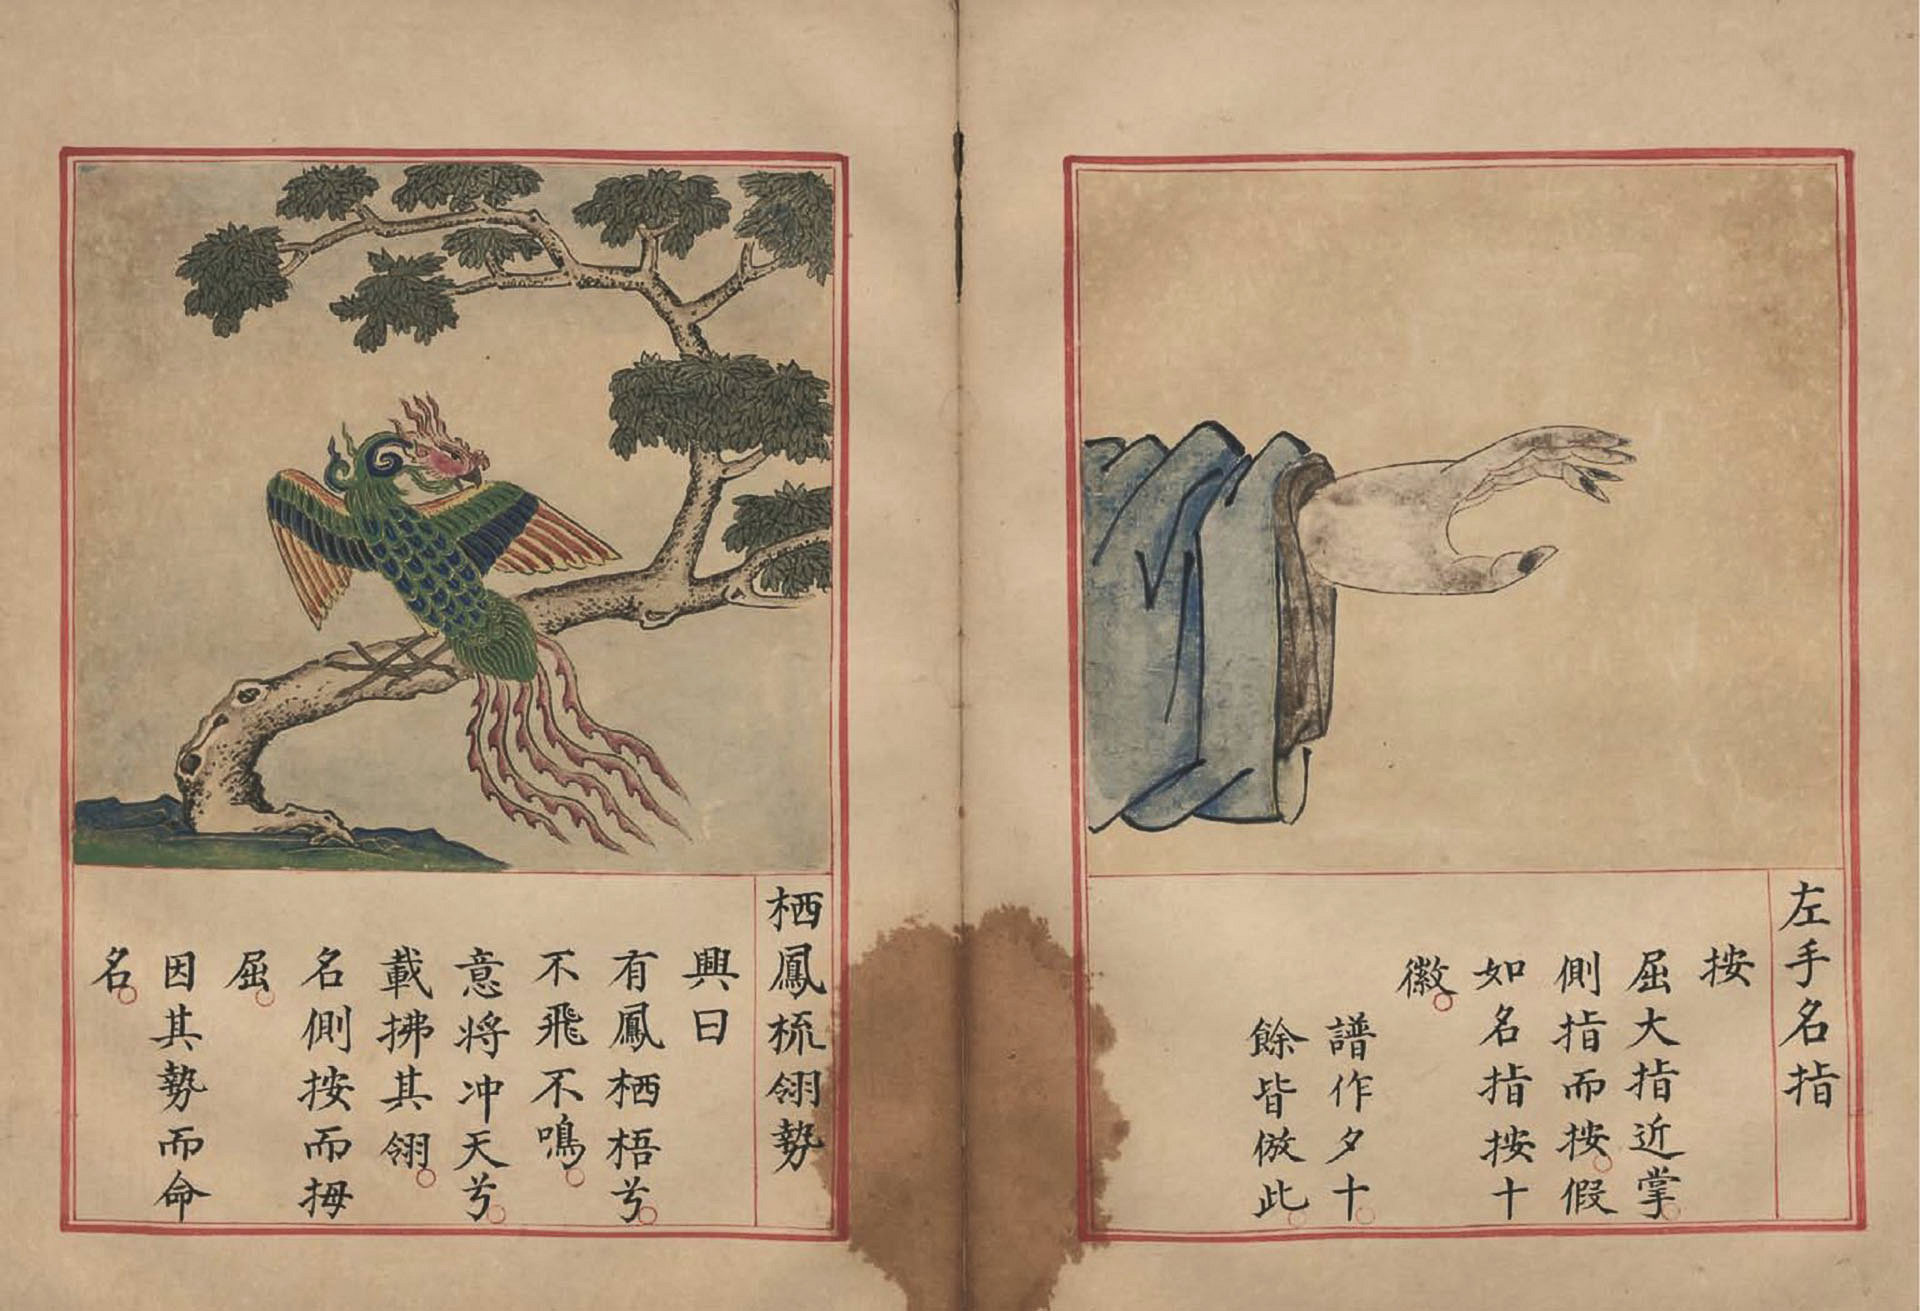 左手名指
按
屈大指近掌
側指而按假
如名指按十
徽
譜作夕十
餘皆倣此
栖鳳梳翎勢
興曰
有鳳栖梧兮
不飛不鳴
意将冲天兮
載拂其翎
名側按而拇
屈
因其勢而命
名